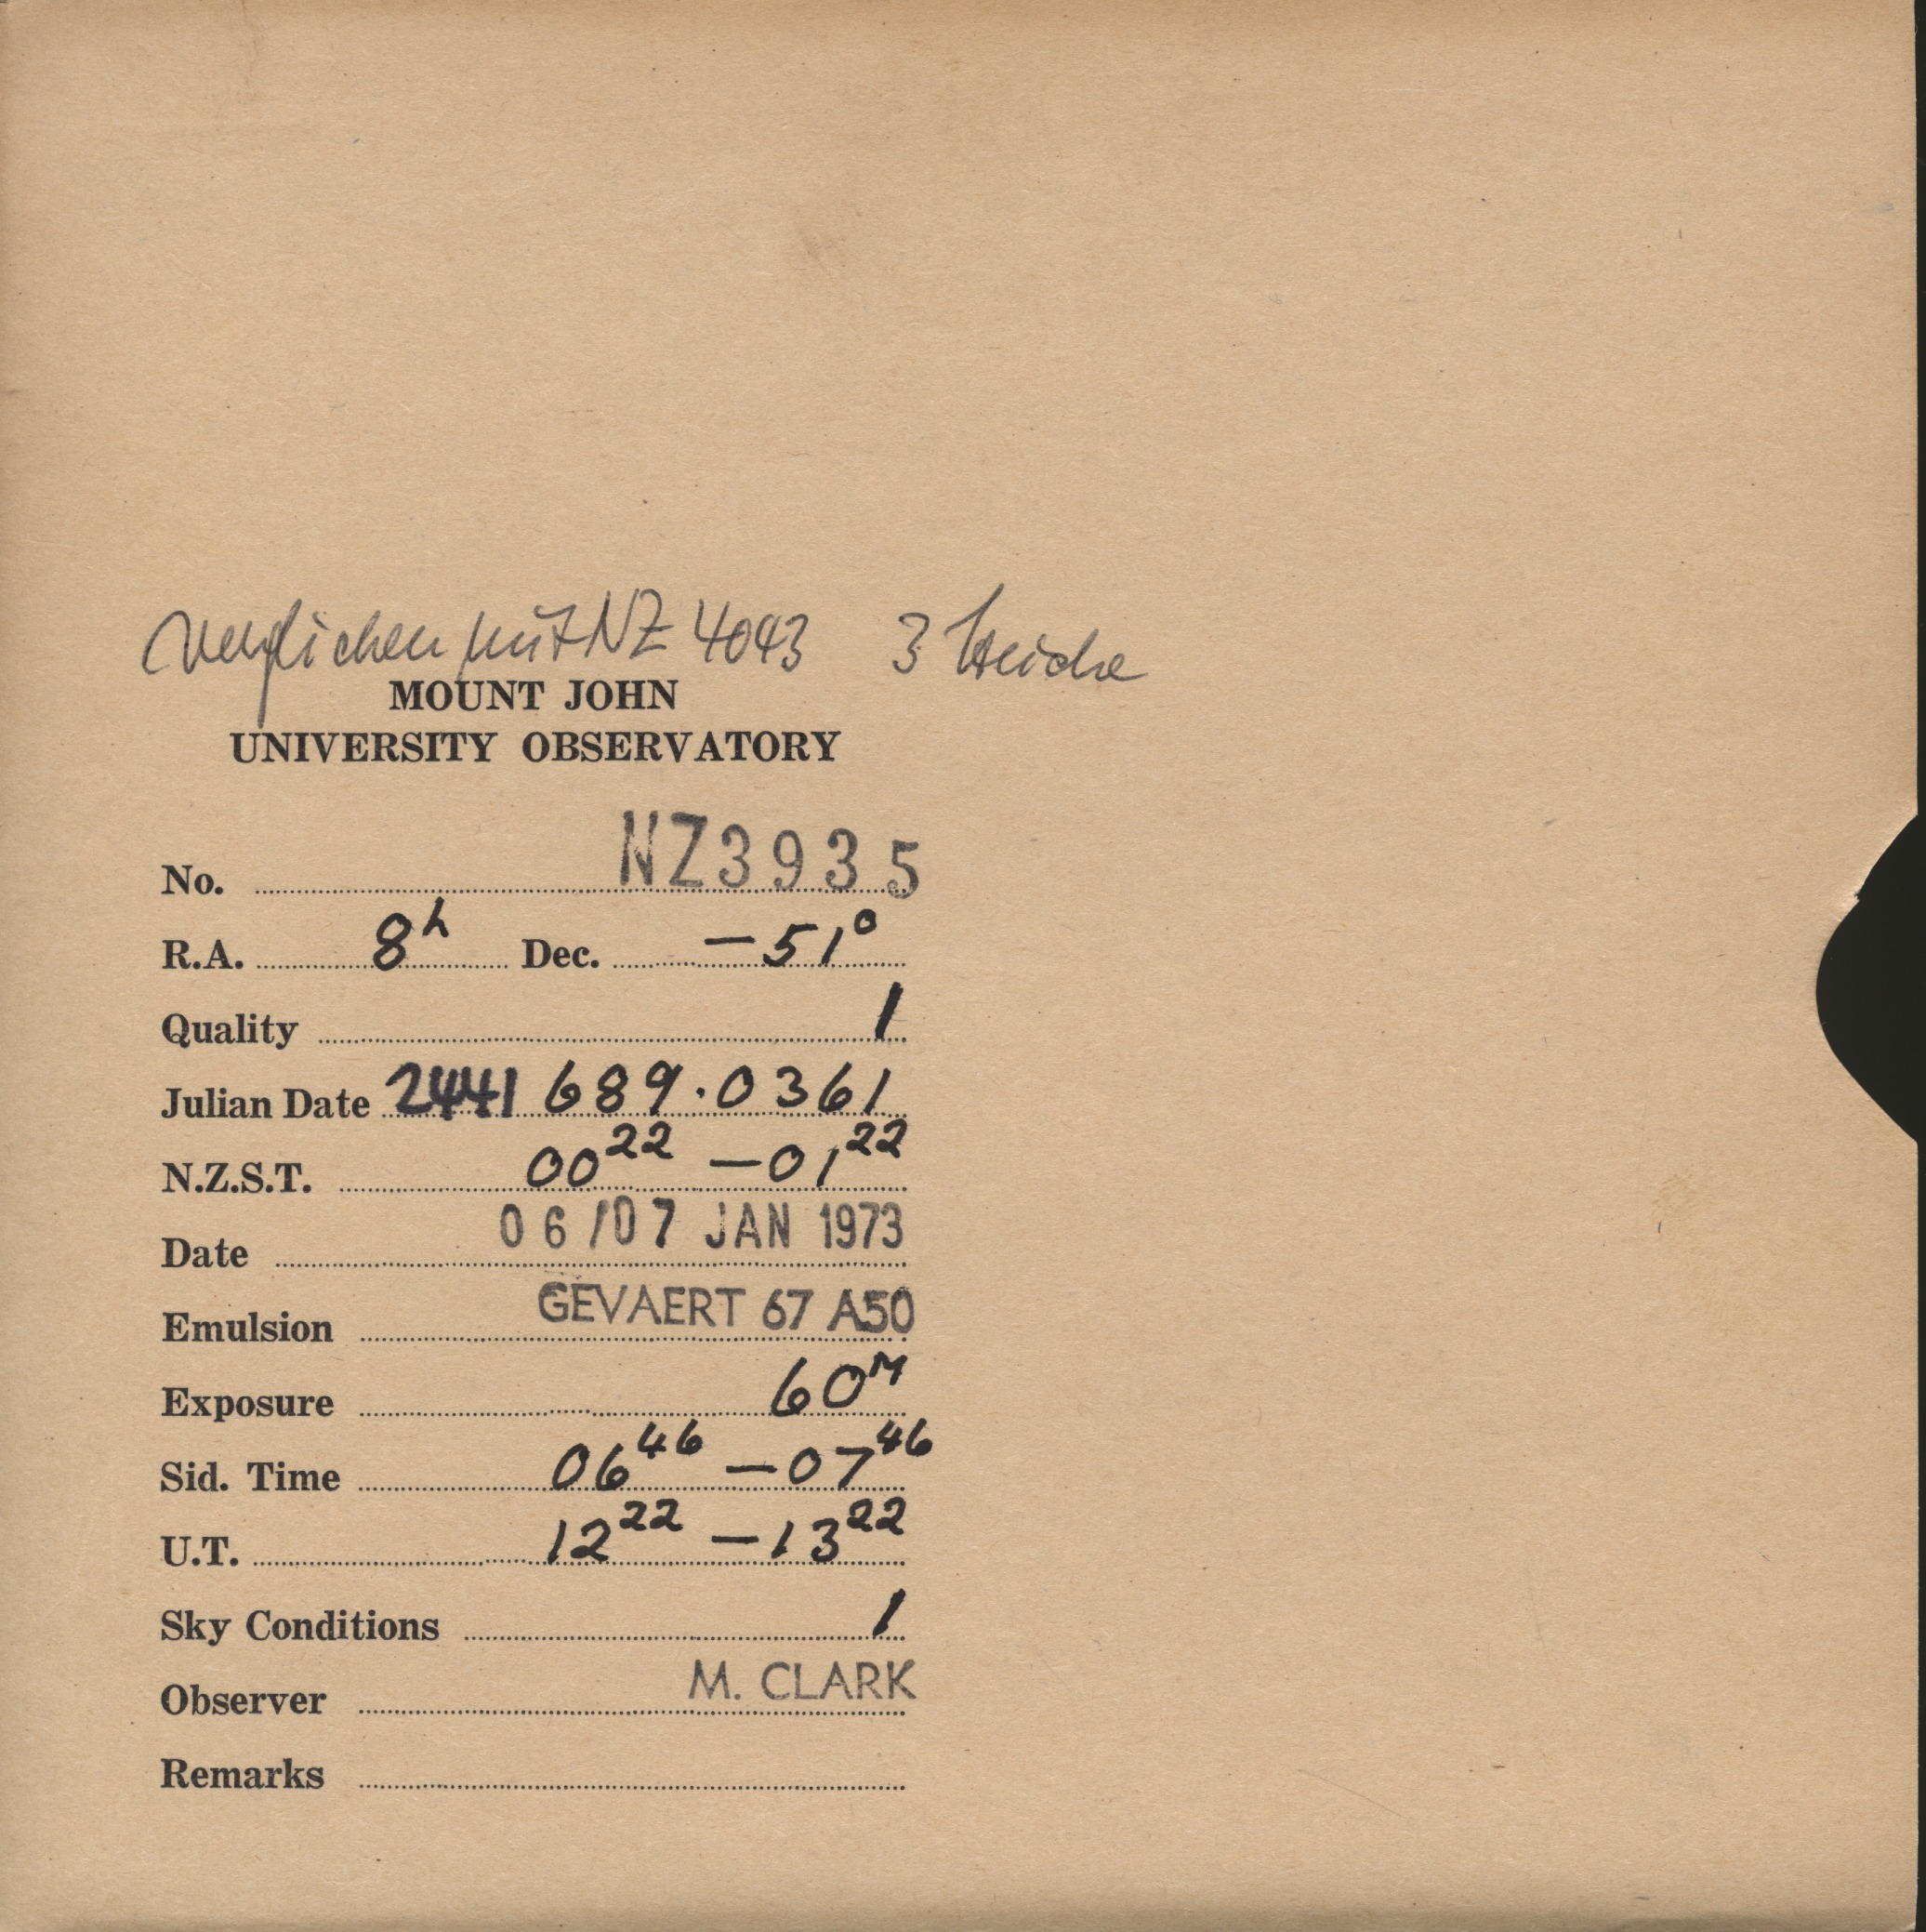 verglichen mit NZ 4043 3
MOUNT JOHN
UNIVERSITY OBSERVATORY
No. NZ3935
R.A. 8h Dec. -51°
Quality 1
Julian Date 2441 689.0361
N.Z.S.T. 00²² - 01²²
Date 06/07 JAN 1973
Emulsion GEVAERT 67 A50
Exposure 60M
Sid. Time 06⁴⁶ - 07⁴⁶
U.T. 12²² - 13²²
Sky Conditions 1
Observer M. CLARK
Remarks